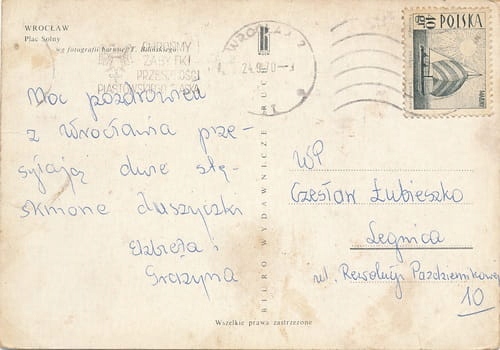 WROCŁAW
Plac Solny
wg fotografii barwnej T. Bilińskiego
CHROŃMY
ZABYTKI
PRZESZŁOŚCI
PIASTOWSKIEGO ŚLĄSKA
WROCŁAW 2
24.9.70
POLSKA
40 GR
BIURO WYDAWNICZE „RUCH”
Moc pozdrowień
z Wrocławia prze-
syłają dwie stę-
sknione duszyczki
Elżbieta i
Grażyna
WP
Czesław Łubieszko
Legnica
ul. Rewolucji Październikowej
10
Wszelkie prawa zastrzeżone